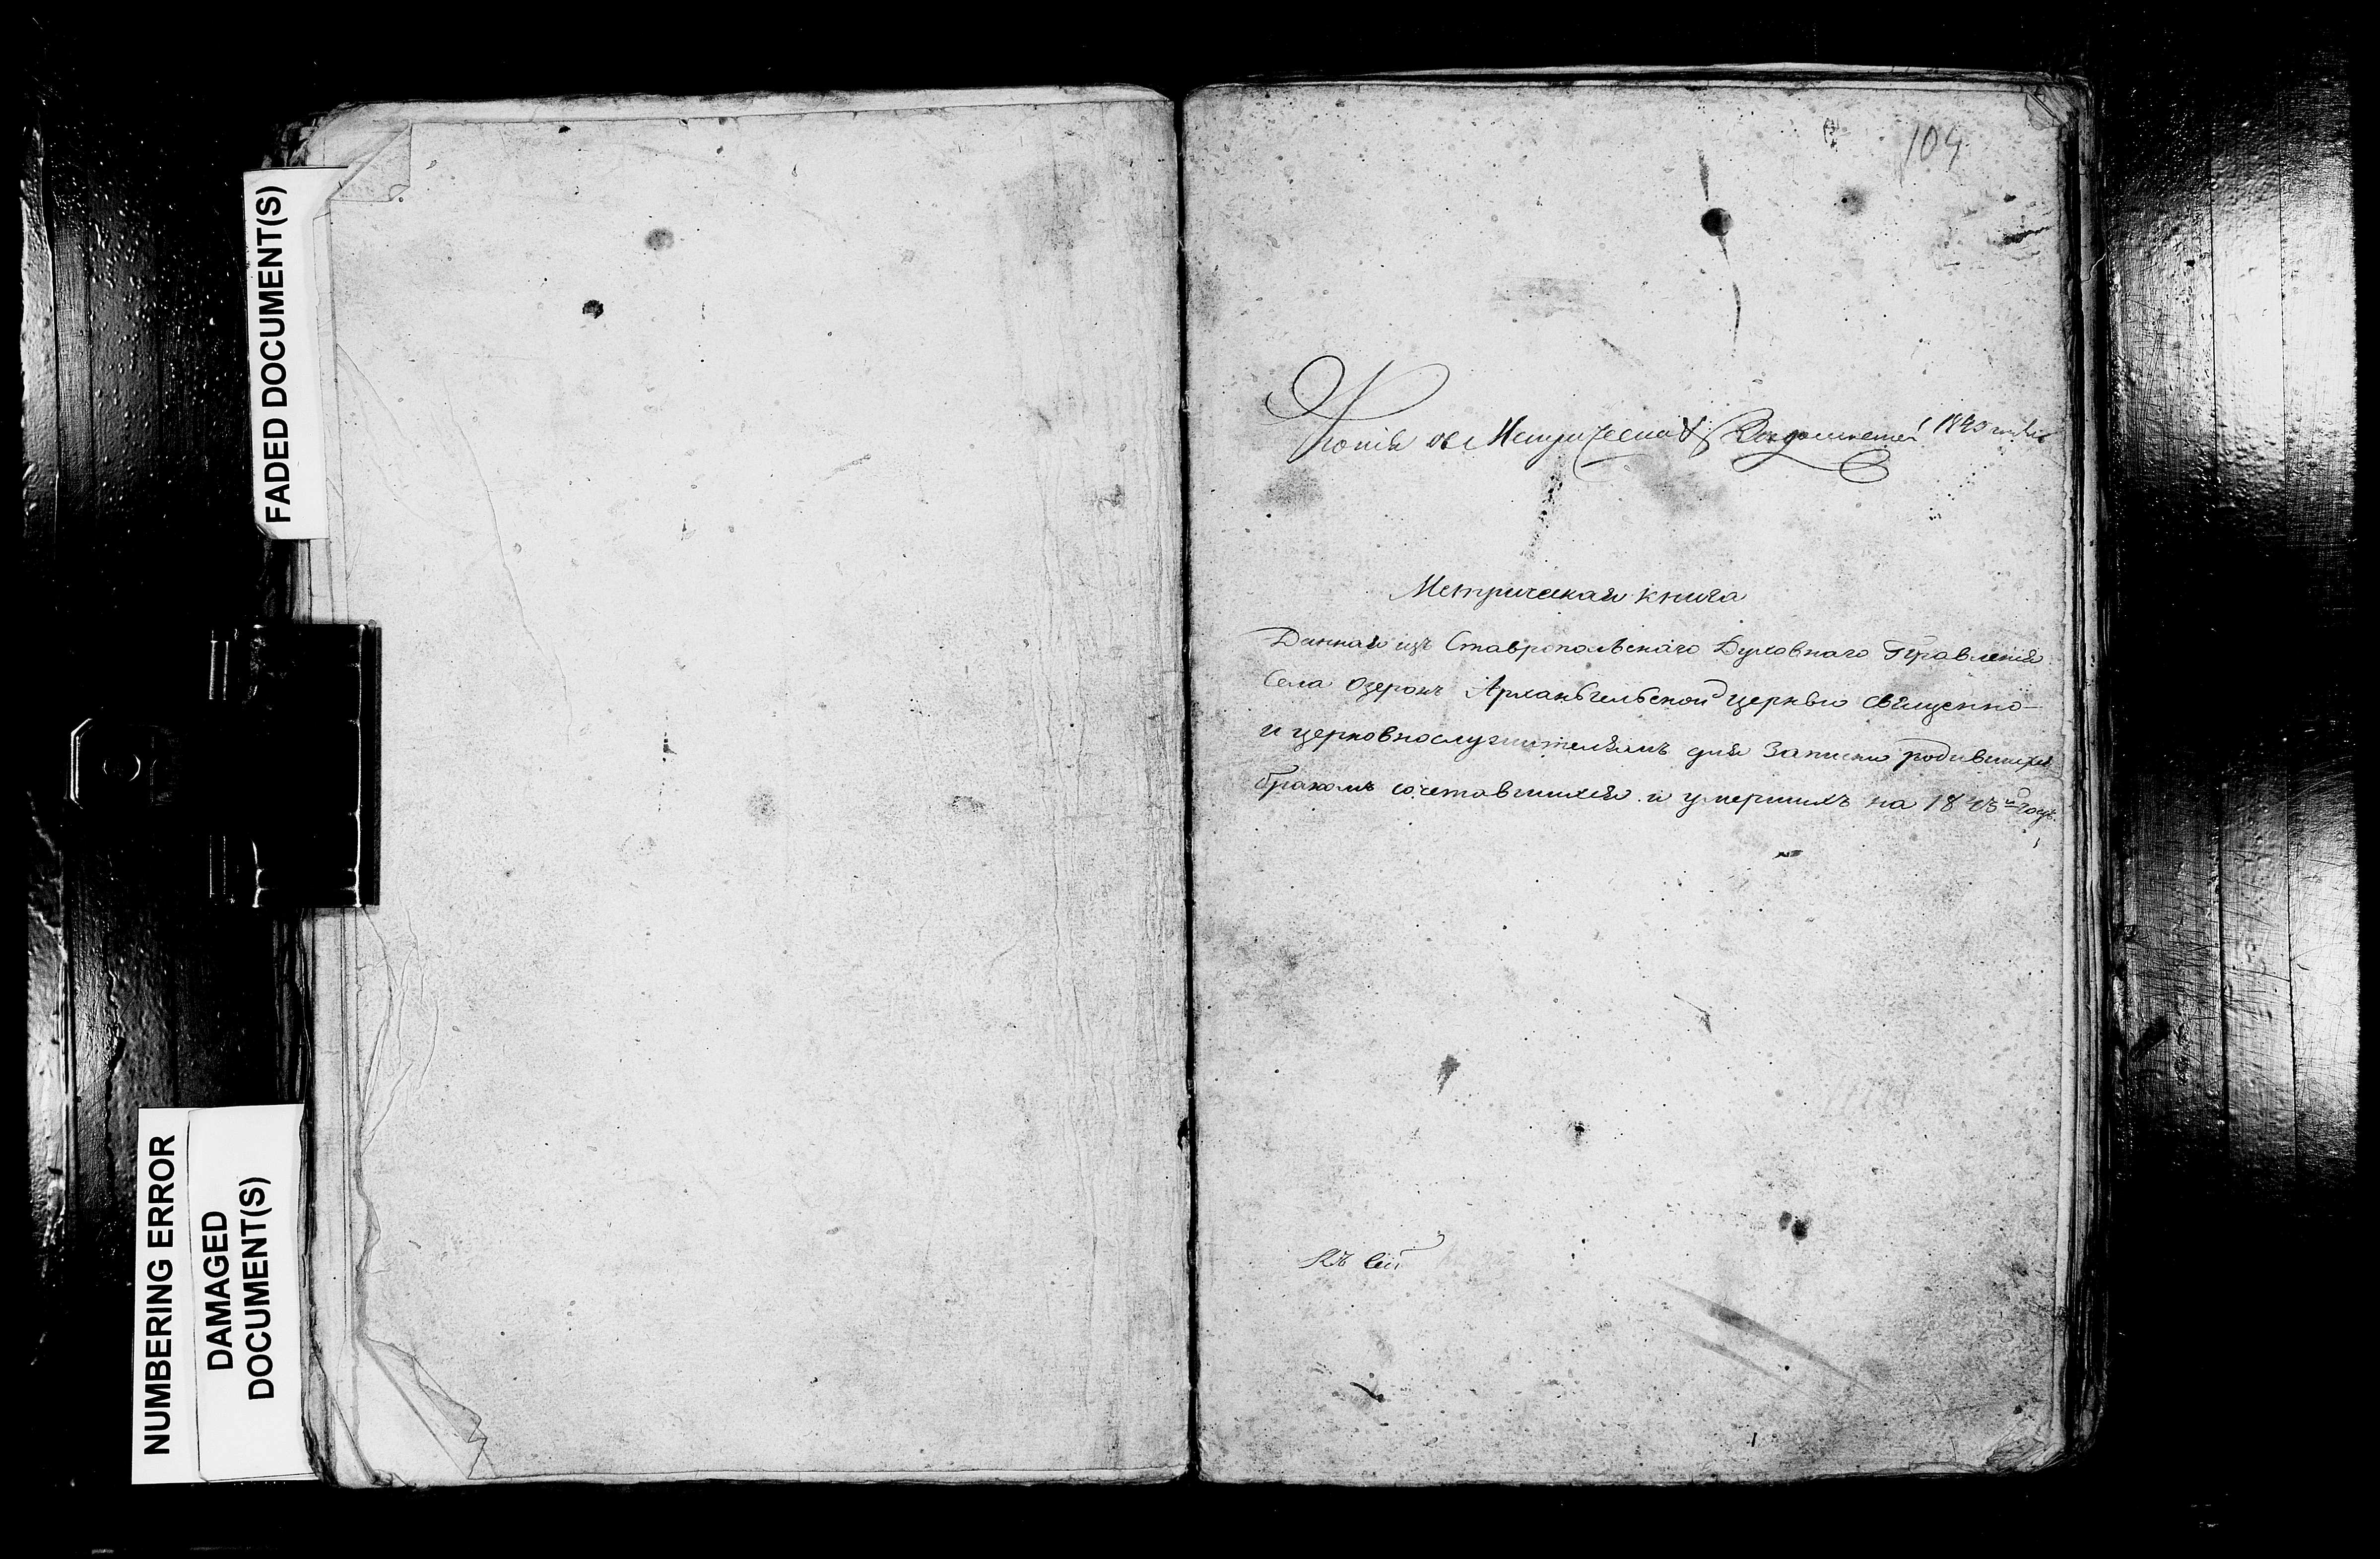 FADED DOCUMENT(S)
NUMBERING ERROR
DAMAGED
DOCUMENT(S)
104
Копія съ Метрическихъ
Метрическая книга
Данная изъ Ставропольскаго Духовнаго Правленія
Села Озерокъ Архангельской церкви священно-
и церковнослужителямъ для записки родившихся
бракомъ сочетавшихся и умершихъ на 1843й годъ.
Къ сей